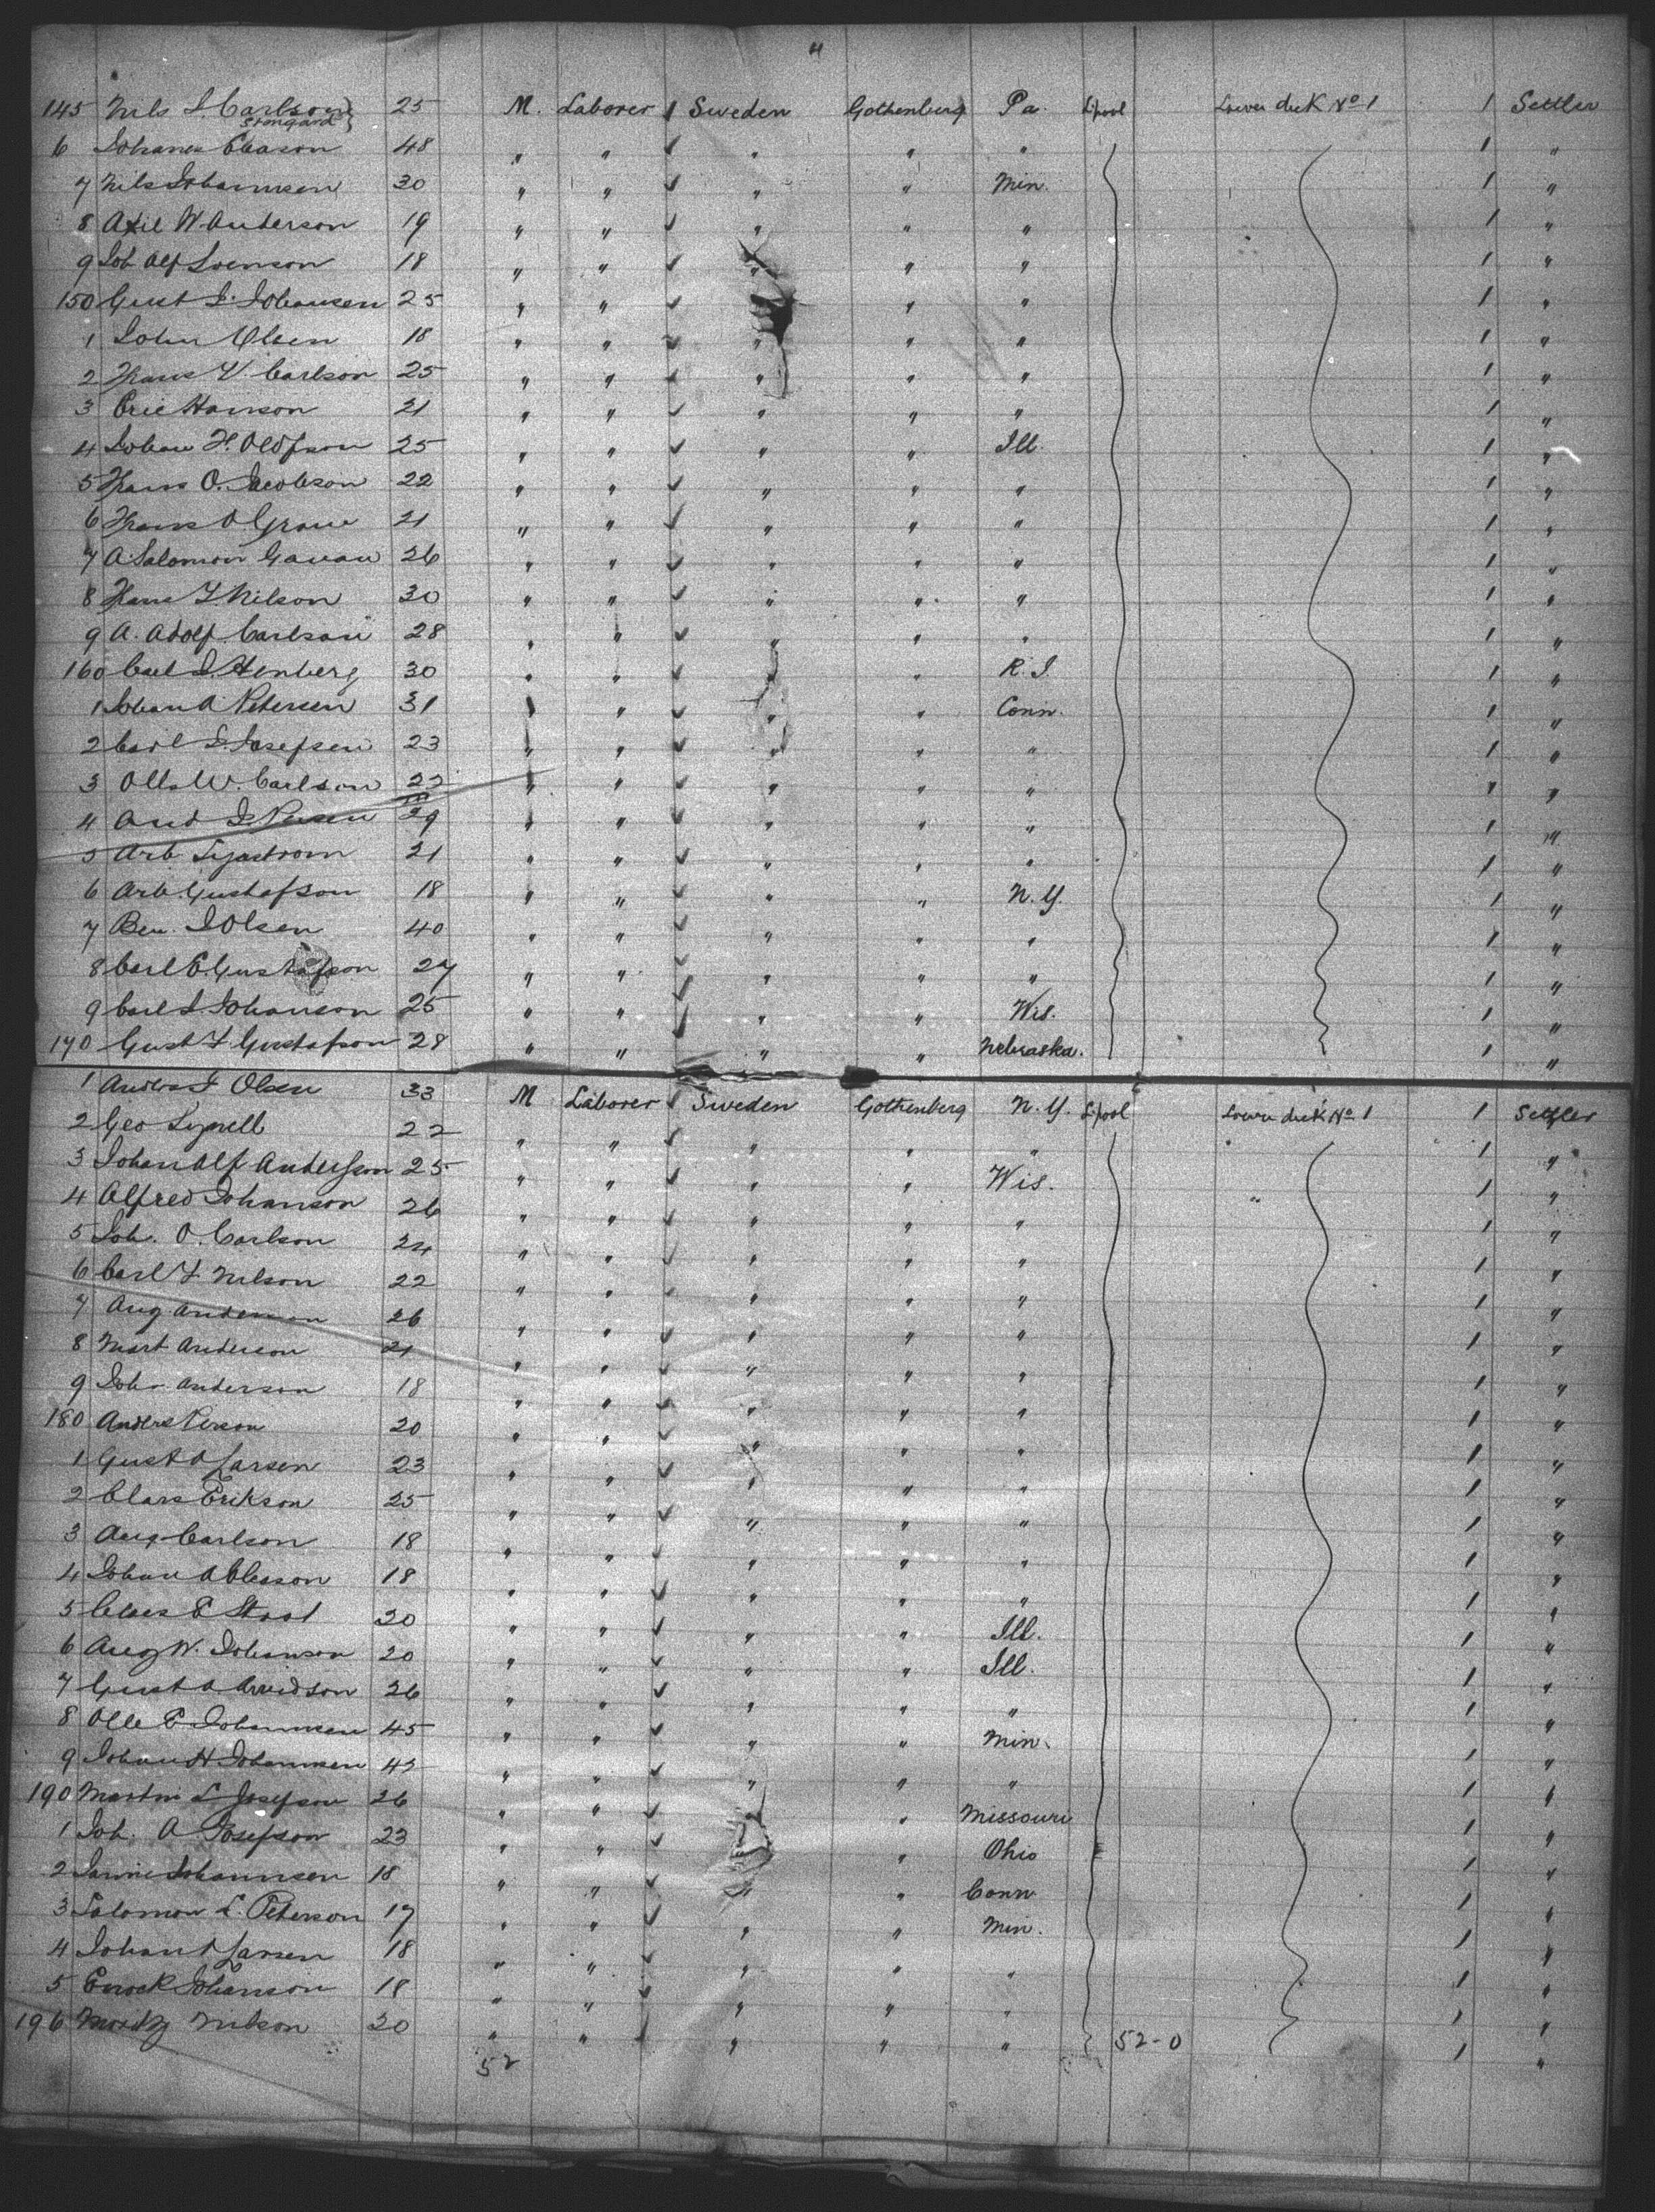 4
145 Nils J. Carlson 25 M. Laborer Sweden Gothenberg Pa. L'pool Lower deck No 1 1 Settler
6 Johanes Clason 48 " " " " " 1 "
7 Nils Johannsen 30 " " " " Min. 1 "
8 Axil W. Anderson 19 " " " " " 1 "
9 Joh Alf Svenson 18 " " " " " 1 "
150 Gust J. Johansen 25 " " " " " 1 "
1 John Olsen 18 " " " " " 1 "
2 Frans V. Carlson 25 " " " " " 1 "
3 Eric Hanson 21 " " " " " 1 "
4 Johan H. Olofson 25 " " " " Ill. 1 "
5 Frans O. Jacobson 22 " " " " " 1 "
6 Frans O 21 " " " " " 1 "
7 A. Salomon 26 " " " " " 1 "
8 Hans F. Nilson 30 " " " " " 1 "
9 A. Adolf Carlson 28 " " " " " 1 "
160 Carl J. 30 " " " " R. I. 1 "
1 Johan A Petersen 31 " " " " Conn. 1 "
2 Carl S. Josefsen 23 " " " " " 1 "
3 Olls W. Carlson 22 " " " " " " "
4 And J. 29 " " " " " 1 "
5 Arb 21 " " " " " 1 "
6 Arb. Gustafson 18 " " " " N. Y. 1 "
7 Ben. J Olsen 40 " " " " " 1 "
8 Carl E. Gustafson 27 " " " " " 1 "
9 Carl J Johanson 25 " " " " Wis. 1 "
170 Gust F Gustafson 28 " " " " Nebraska. 1 "
1 Anders J Olsen 33 M Laborer Sweden Gothenberg N. Y. L'pool Lower deck No 1 1 Settler
2 Geo 22 " " " " " 1 "
3 Johan Alf Andersson 25 " " " " Wis. 1 "
4 Alfred Johanson 26 " " " " " 1 "
5 Joh. O. Carlson 24 " " " " " 1 "
6 Carl F Nilson 22 " " " " " 1 "
7 Aug. Anderson 26 " " " " " 1 "
8 Mart Anderson 21 " " " " " 1 "
9 Joh. Anderson 18 " " " " " 1 "
180 Anders Person 20 " " " " " 1 "
1 Gust A Larsen 23 " " " " " 1 "
2 Clars Erikson 25 " " " " " 1 "
3 Aug Carlson 18 " " " " " 1 "
4 Johan A 18 " " " " " 1 "
5 Claes E 20 " " " " Ill. 1 "
6 Aug W. Johanson 20 " " " " Ill. 1 "
7 Gust A Arvidson 26 " " " " " 1 "
8 Olle P Johannsen 45 " " " " Min. 1 "
9 Johan H Johannsen 43 " " " " " 1 "
190 Martin L Josefson 26 " " " " Missouri 1 "
1 Joh. A Josefson 23 " " " " Ohio 1 "
2 Johannsen 18 " " " " Conn 1 "
3 Salomon L. Peterson 17 " " " " Min. 1 "
4 Johan A Larsen 18 " " " " " 1 "
5 Enock Johanson 18 " " " " " 1 "
196 Moritz Nilson 20 " " " " " 52-0 1 "
52